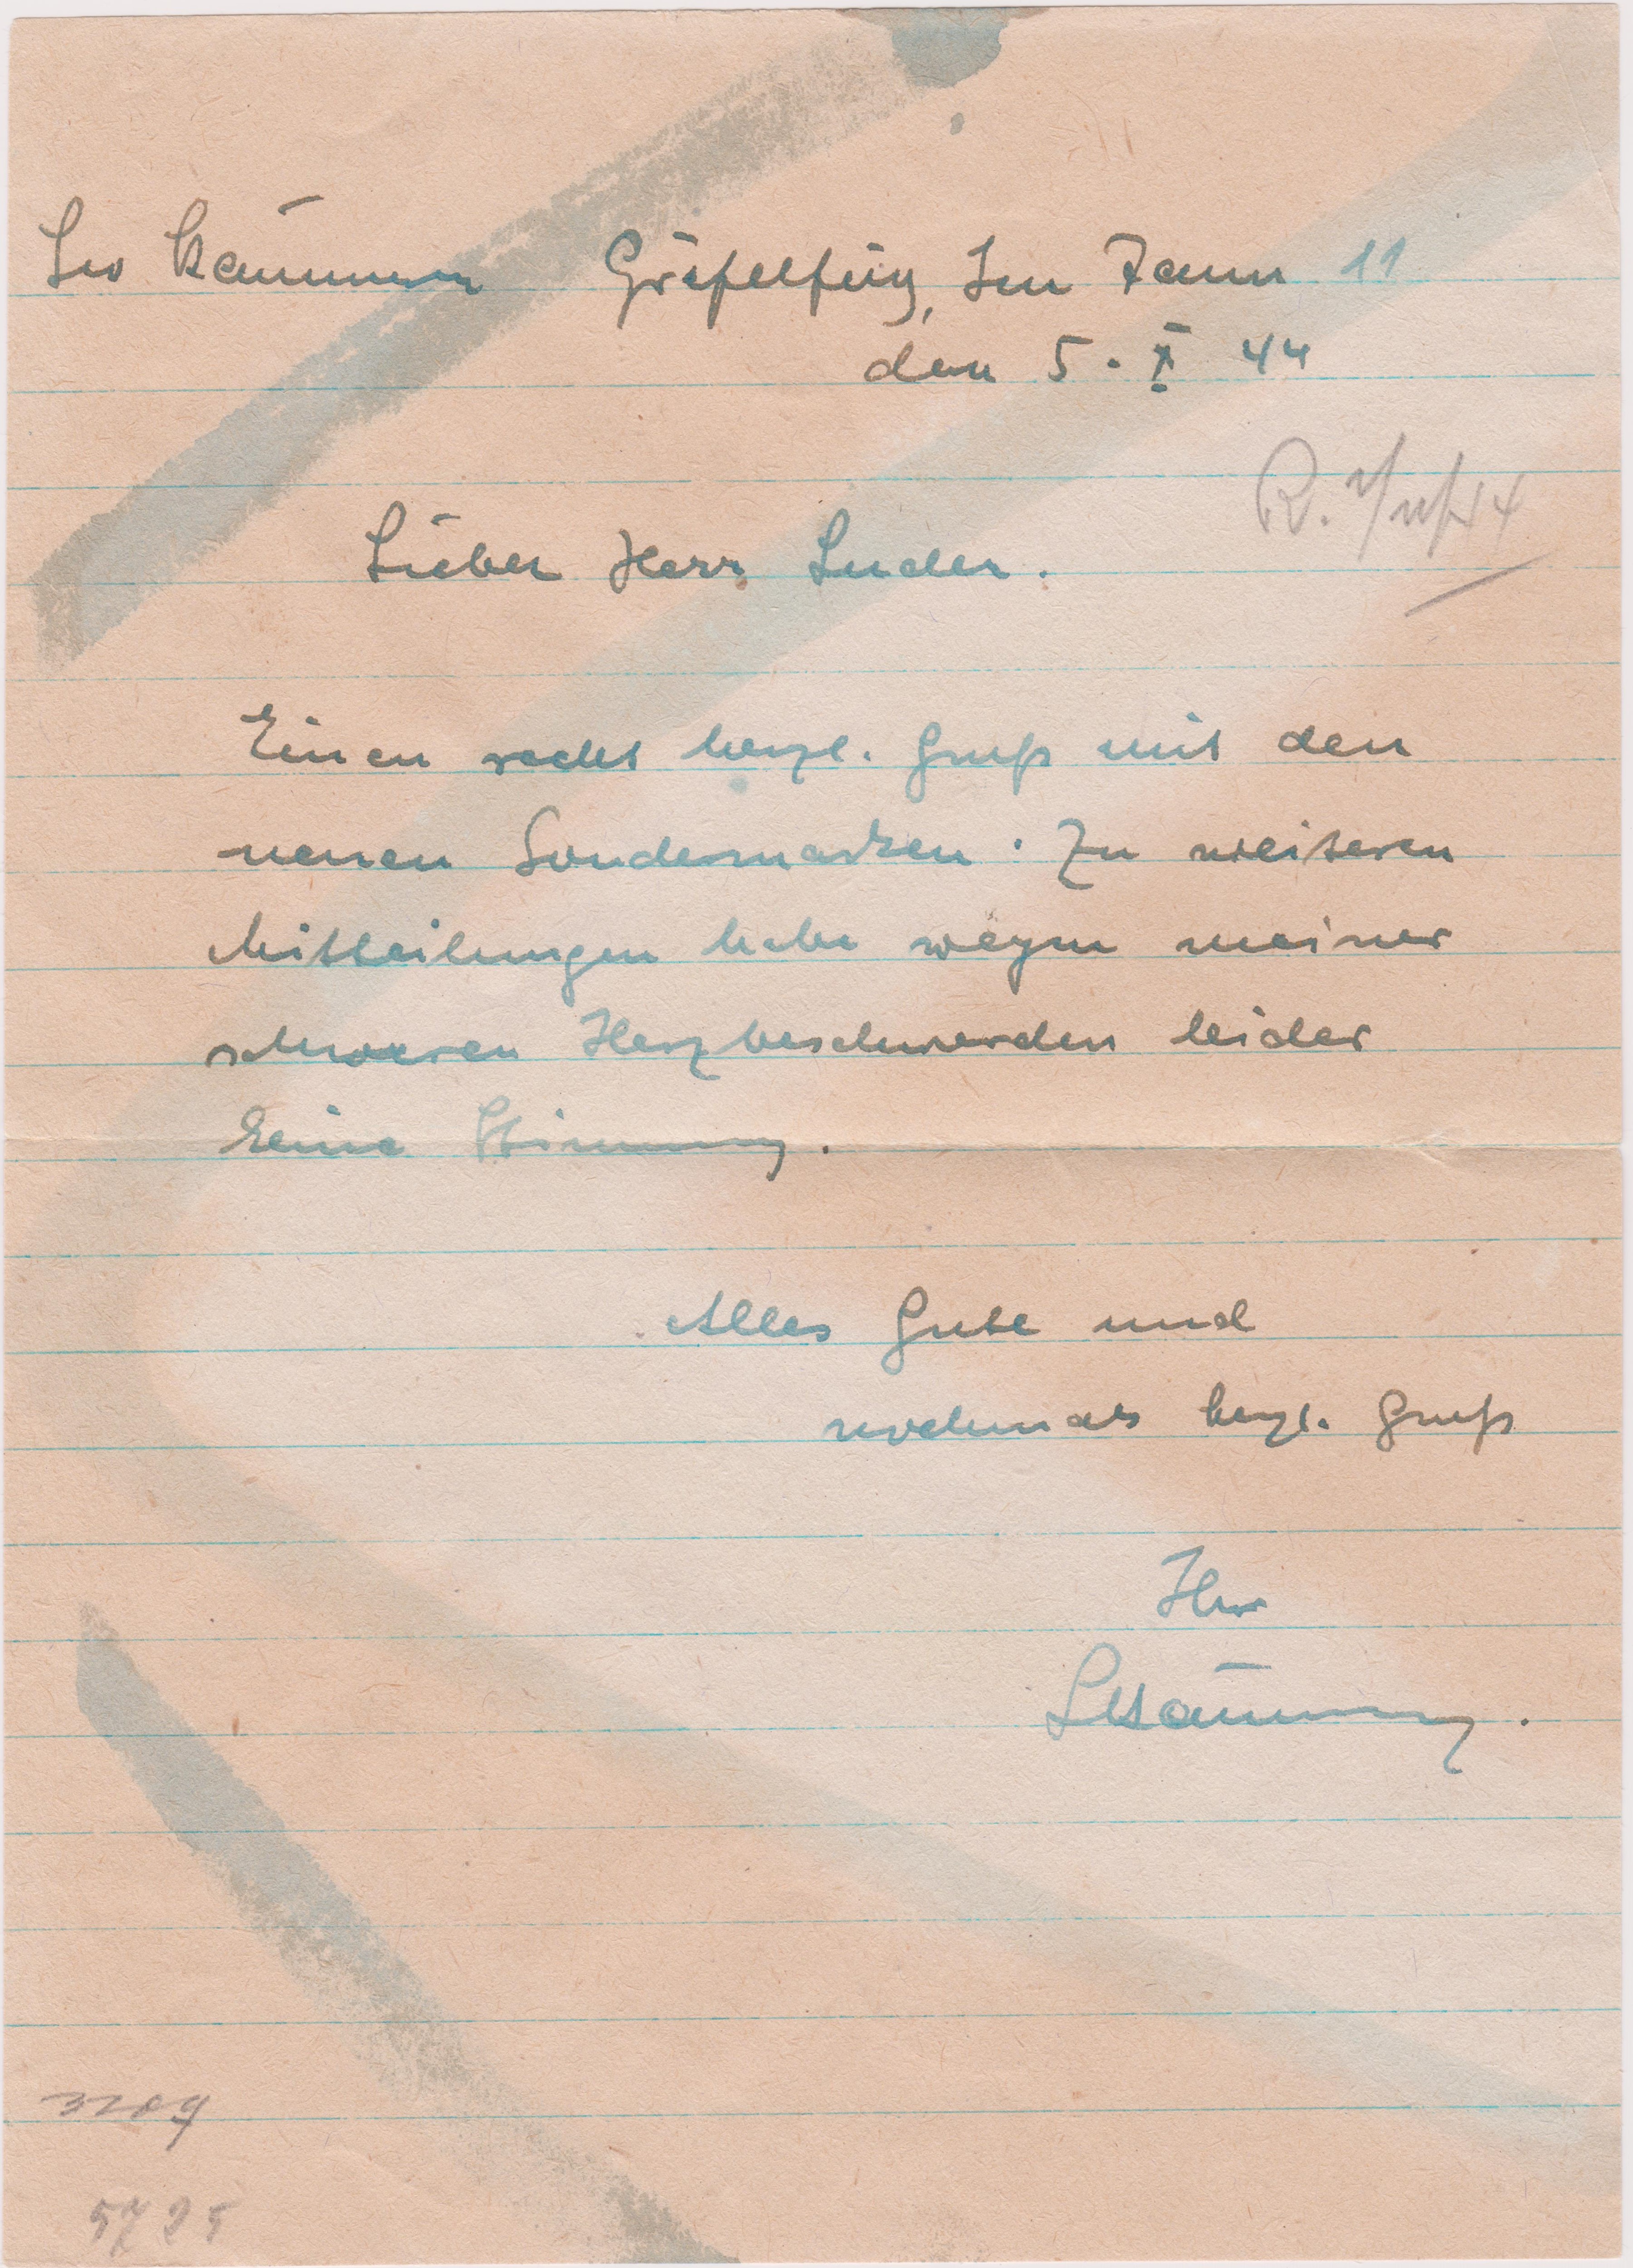 Leo Kammerer Gräfelfing, Im Tann 11
den 5. X 44
R.
Lieber Herr Luder.
Einen recht herzl. Gruß mit den
neuen Sondermarken. Zu weiteren
Mitteilungen habe wegen meiner
schweren Herzbeschwerden leider
keine Stimmung.
Alles Gute und
nochmals herzl. Gruß
Ihr
5725